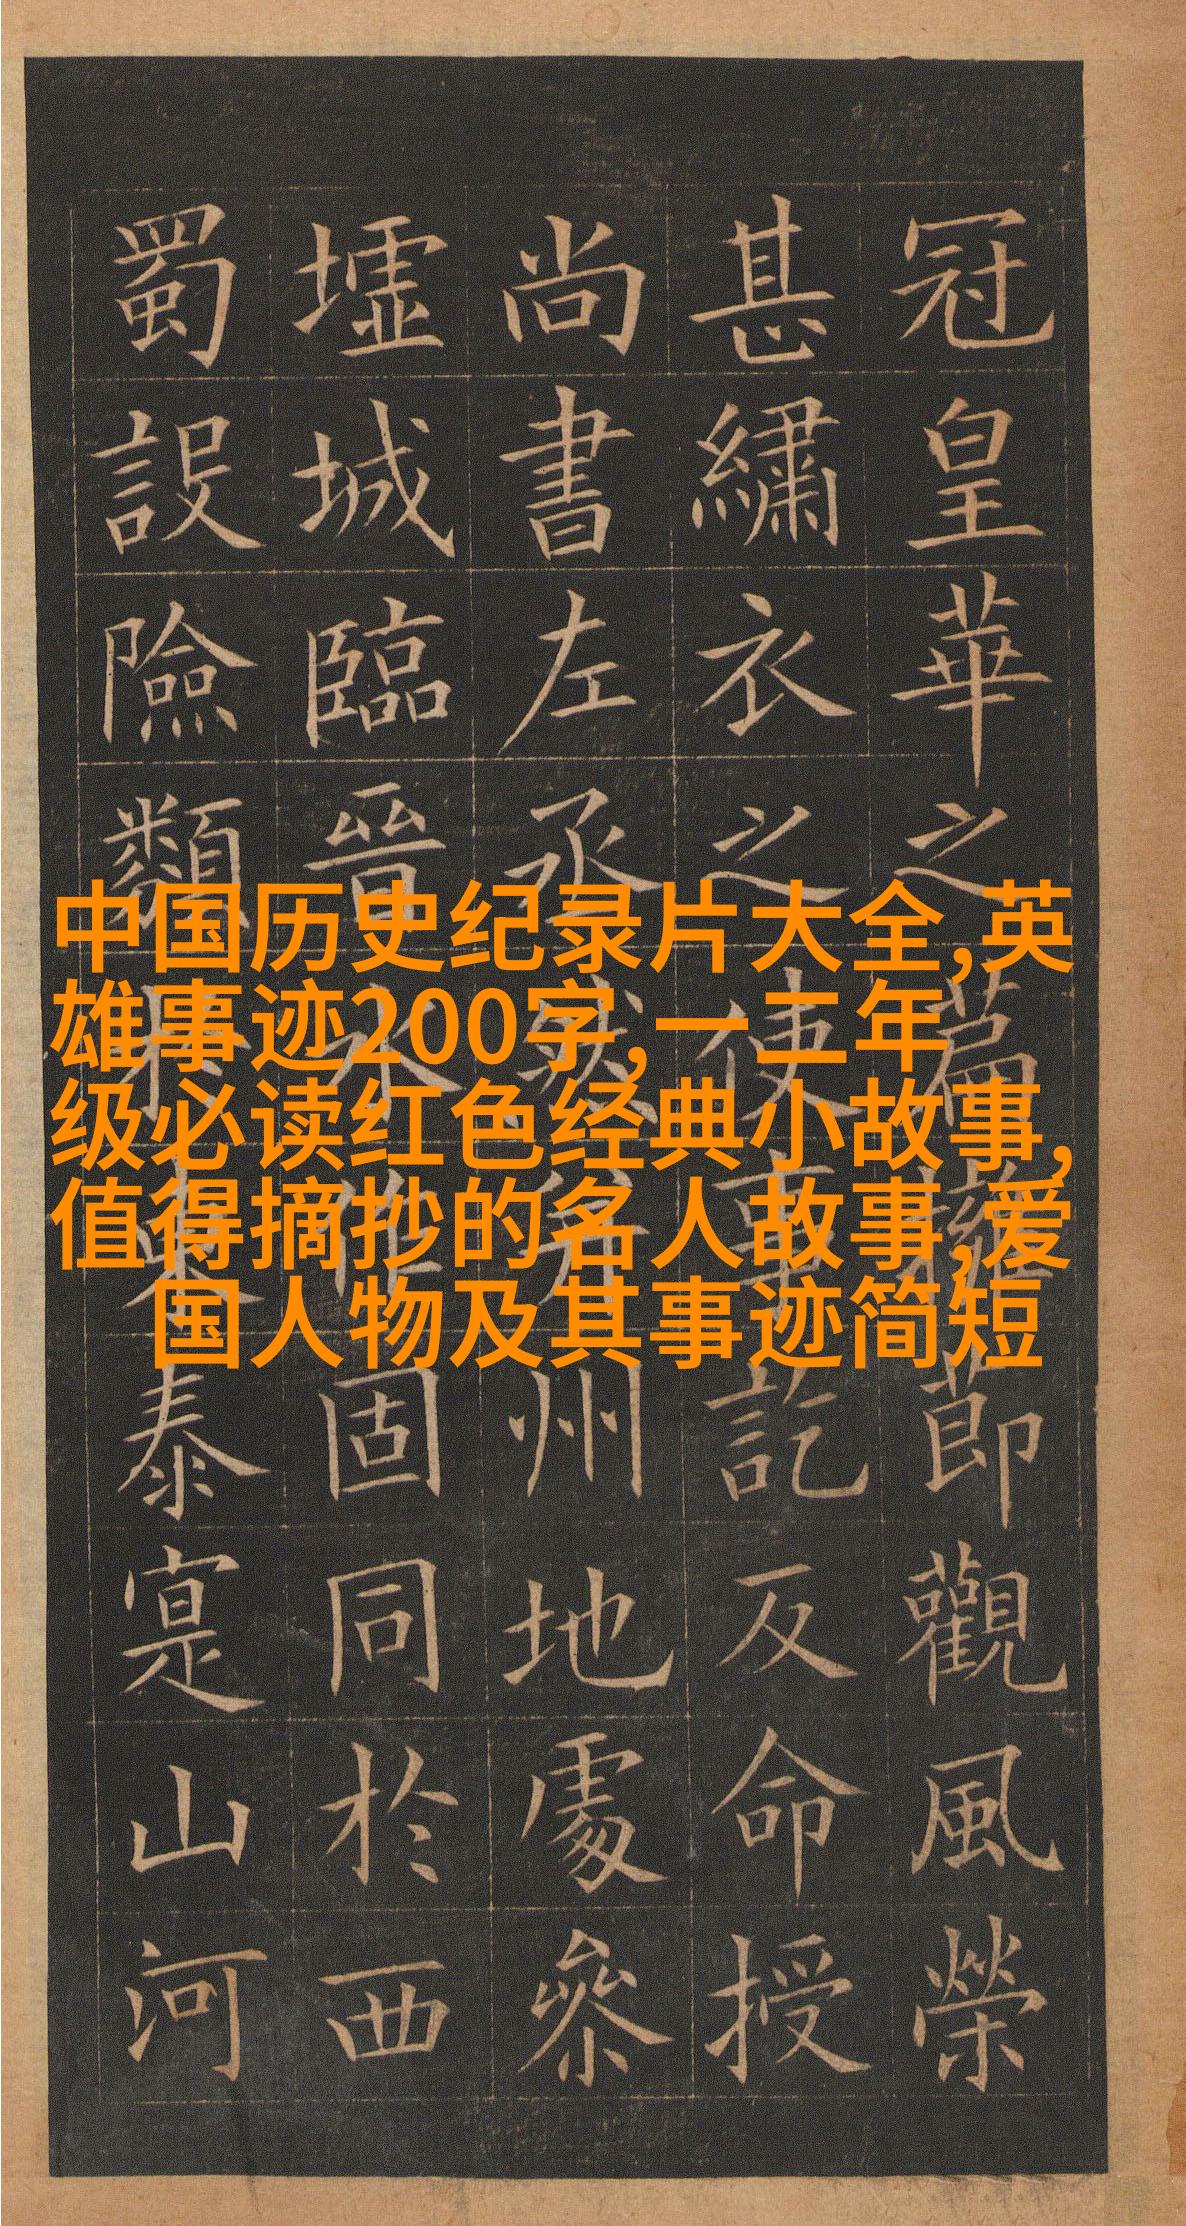 冠皇華之篇擁節觀風榮
甚繡衣之使事訖反命授
尚書左丞然并州地處參
墟城臨晉水作固同於西
蜀設險類於東秦寔山河
中国历史纪录片大全,英
雄事迹200字,一 二年
级必读红色经典小故事,
值得摘抄的名人故事,爱
国人物及其事迹简短